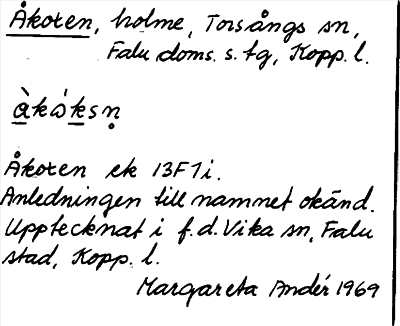 Åkoxen, holme, Torsångs sn,
Falu doms. s. tg, Kopp. l.
àkὼksn̥
Åkoxen ek 13F7i.
Anledningen till namnet okänd.
Upptecknat i f.d. Vika sn, Falu
stad, Kopp. l.
Margareta Andér 1969